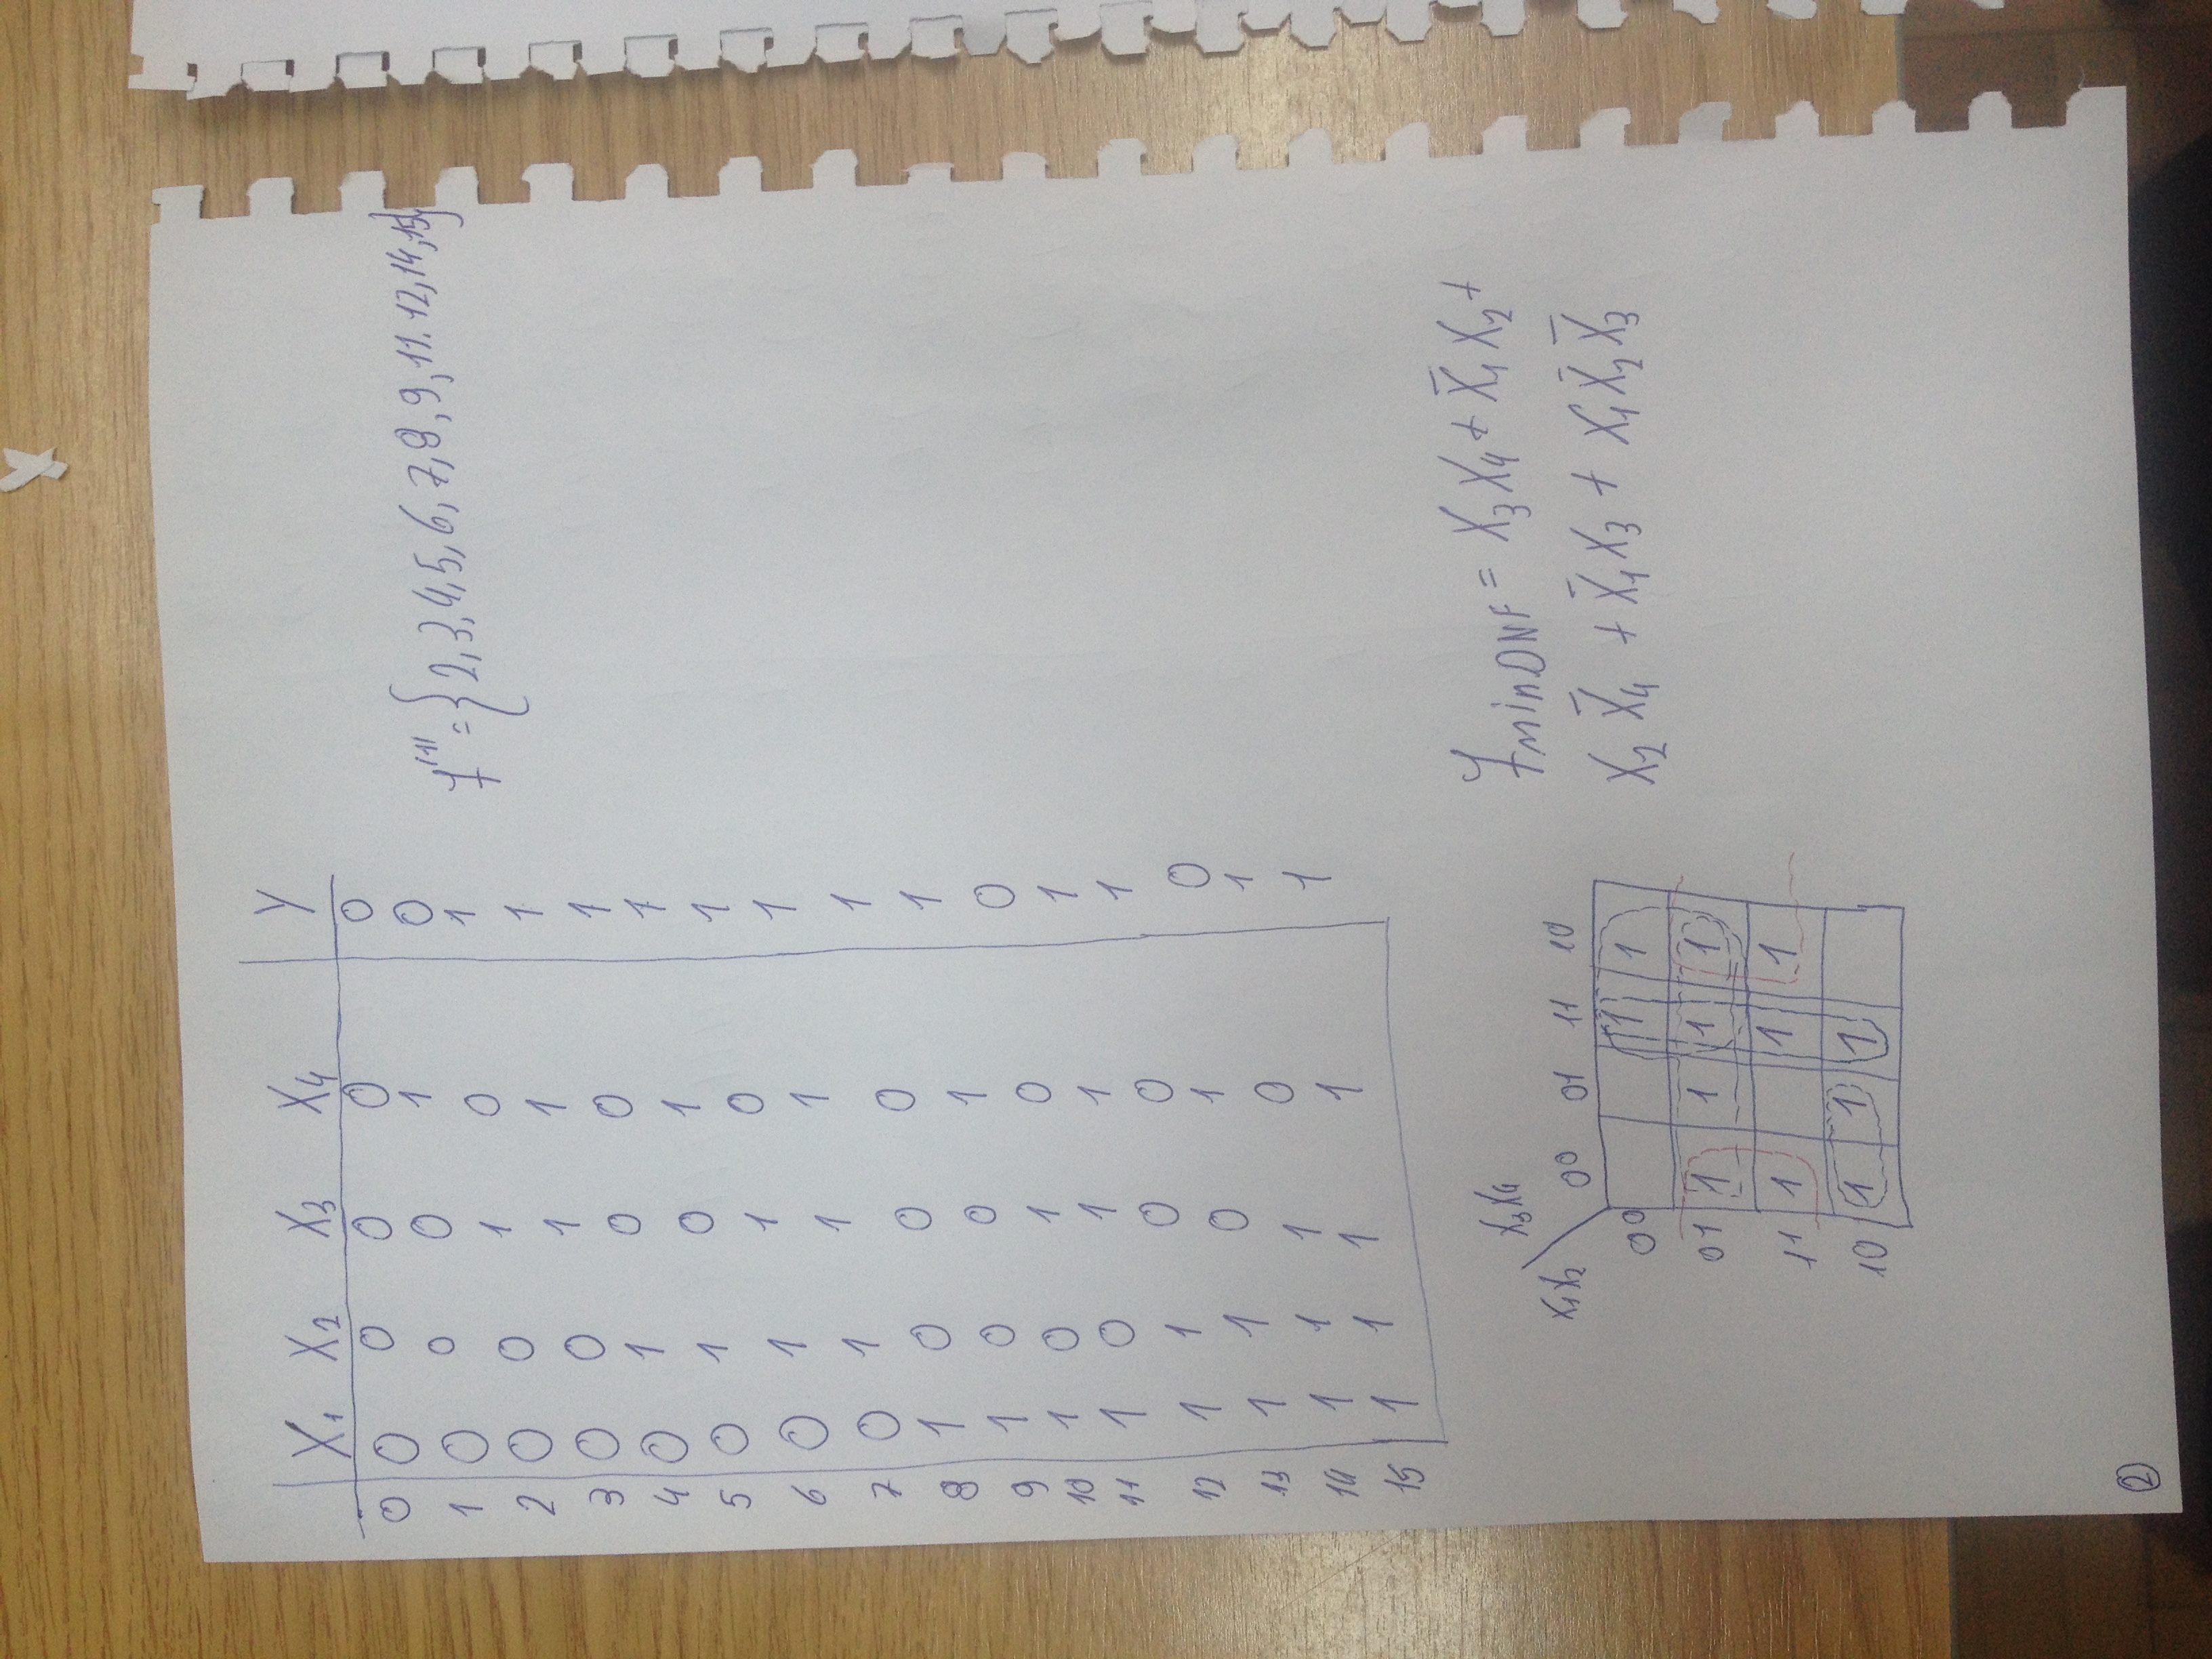 X₁ X₂ X₃ X₄ Y
0 0 0 0 0 0
1 0 0 0 1 0
2 0 0 1 0 1
3 0 0 1 1 1
4 0 1 0 0 1
5 0 1 0 1 1
6 0 1 1 0 1
7 0 1 1 1 1
8 1 0 0 0 1
9 1 0 0 1 1
10 1 0 1 0 0
11 1 0 1 1 1
12 1 1 0 0 1
13 1 1 0 1 0
14 1 1 1 0 1
15 1 1 1 1 1
f⁽¹⁾ = {2,3,4,5,6,7,8,9,11.12,14,15}
X₃X₄
X₁X₂ 00 01 11 10
00 1 1
01 1 1 1 1
11 1 1 1
10 1 1 1
fminDNF = X₃X₄ + X̄₁X₂ +
X₂X̄₄ + X̄₁X₃ + X₁X̄₂X̄₃
2